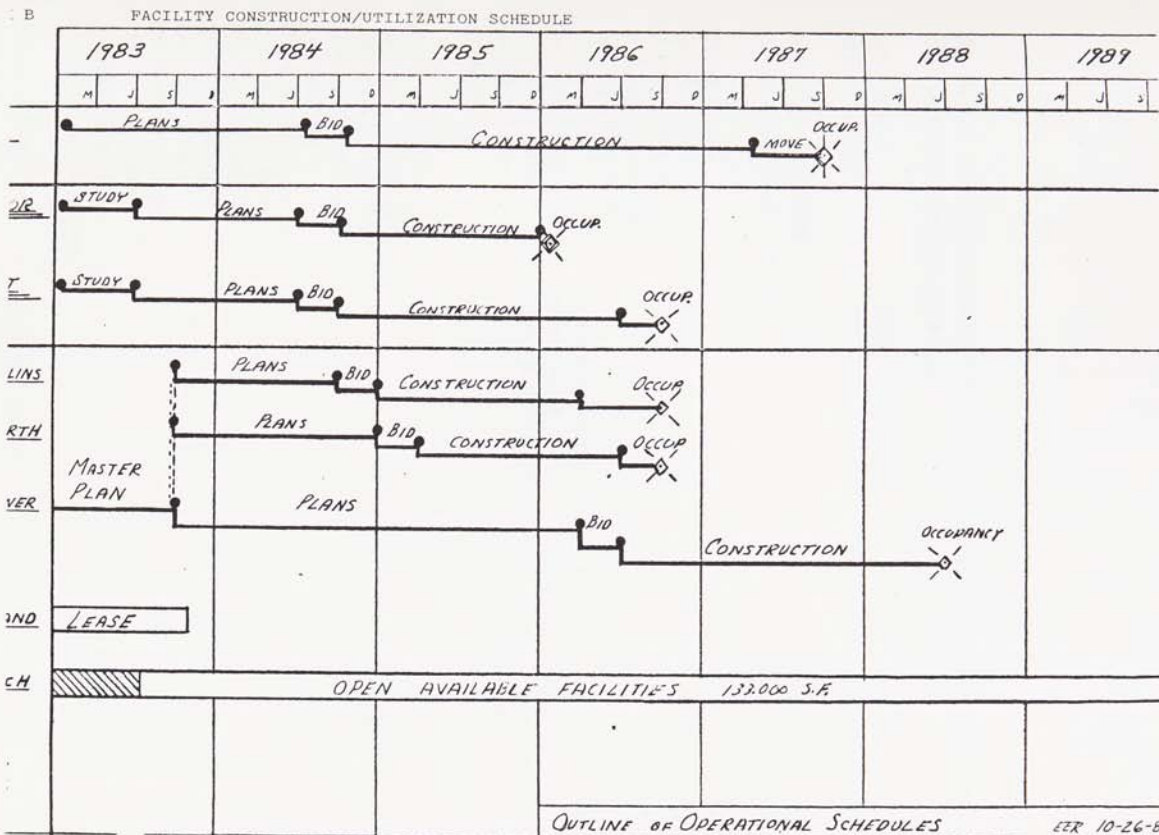 : B FACILITY CONSTRUCTION/UTILIZATION SCHEDULE
1983 1984 1985 1986 1987 1988 1989
M J S D M J S D M J S D M J S D M J S D M J S D M J S
PLANS BID CONSTRUCTION MOVE OCCUP.
STUDY PLANS BID CONSTRUCTION OCCUP.
T STUDY PLANS BID CONSTRUCTION OCCUP.
LINS PLANS BID CONSTRUCTION OCCUP
RTH PLANS BID CONSTRUCTION OCCUP
MASTER
PLAN
VER PLANS BID CONSTRUCTION OCCUPANCY
LEASE
CH OPEN AVAILABLE FACILITIES 133.000 S.F.
OUTLINE OF OPERATIONAL SCHEDULES 10-26-8